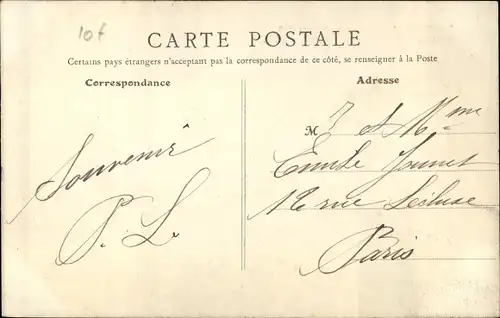 10f
CARTE POSTALE
Certains pays étrangers n'acceptant pas la correspondance de ce côté, se renseigner à la Poste
Correspondance
Adresse
Souvenir
P. L.
M r et Mme
Emile
12 rue Lécluse
Paris